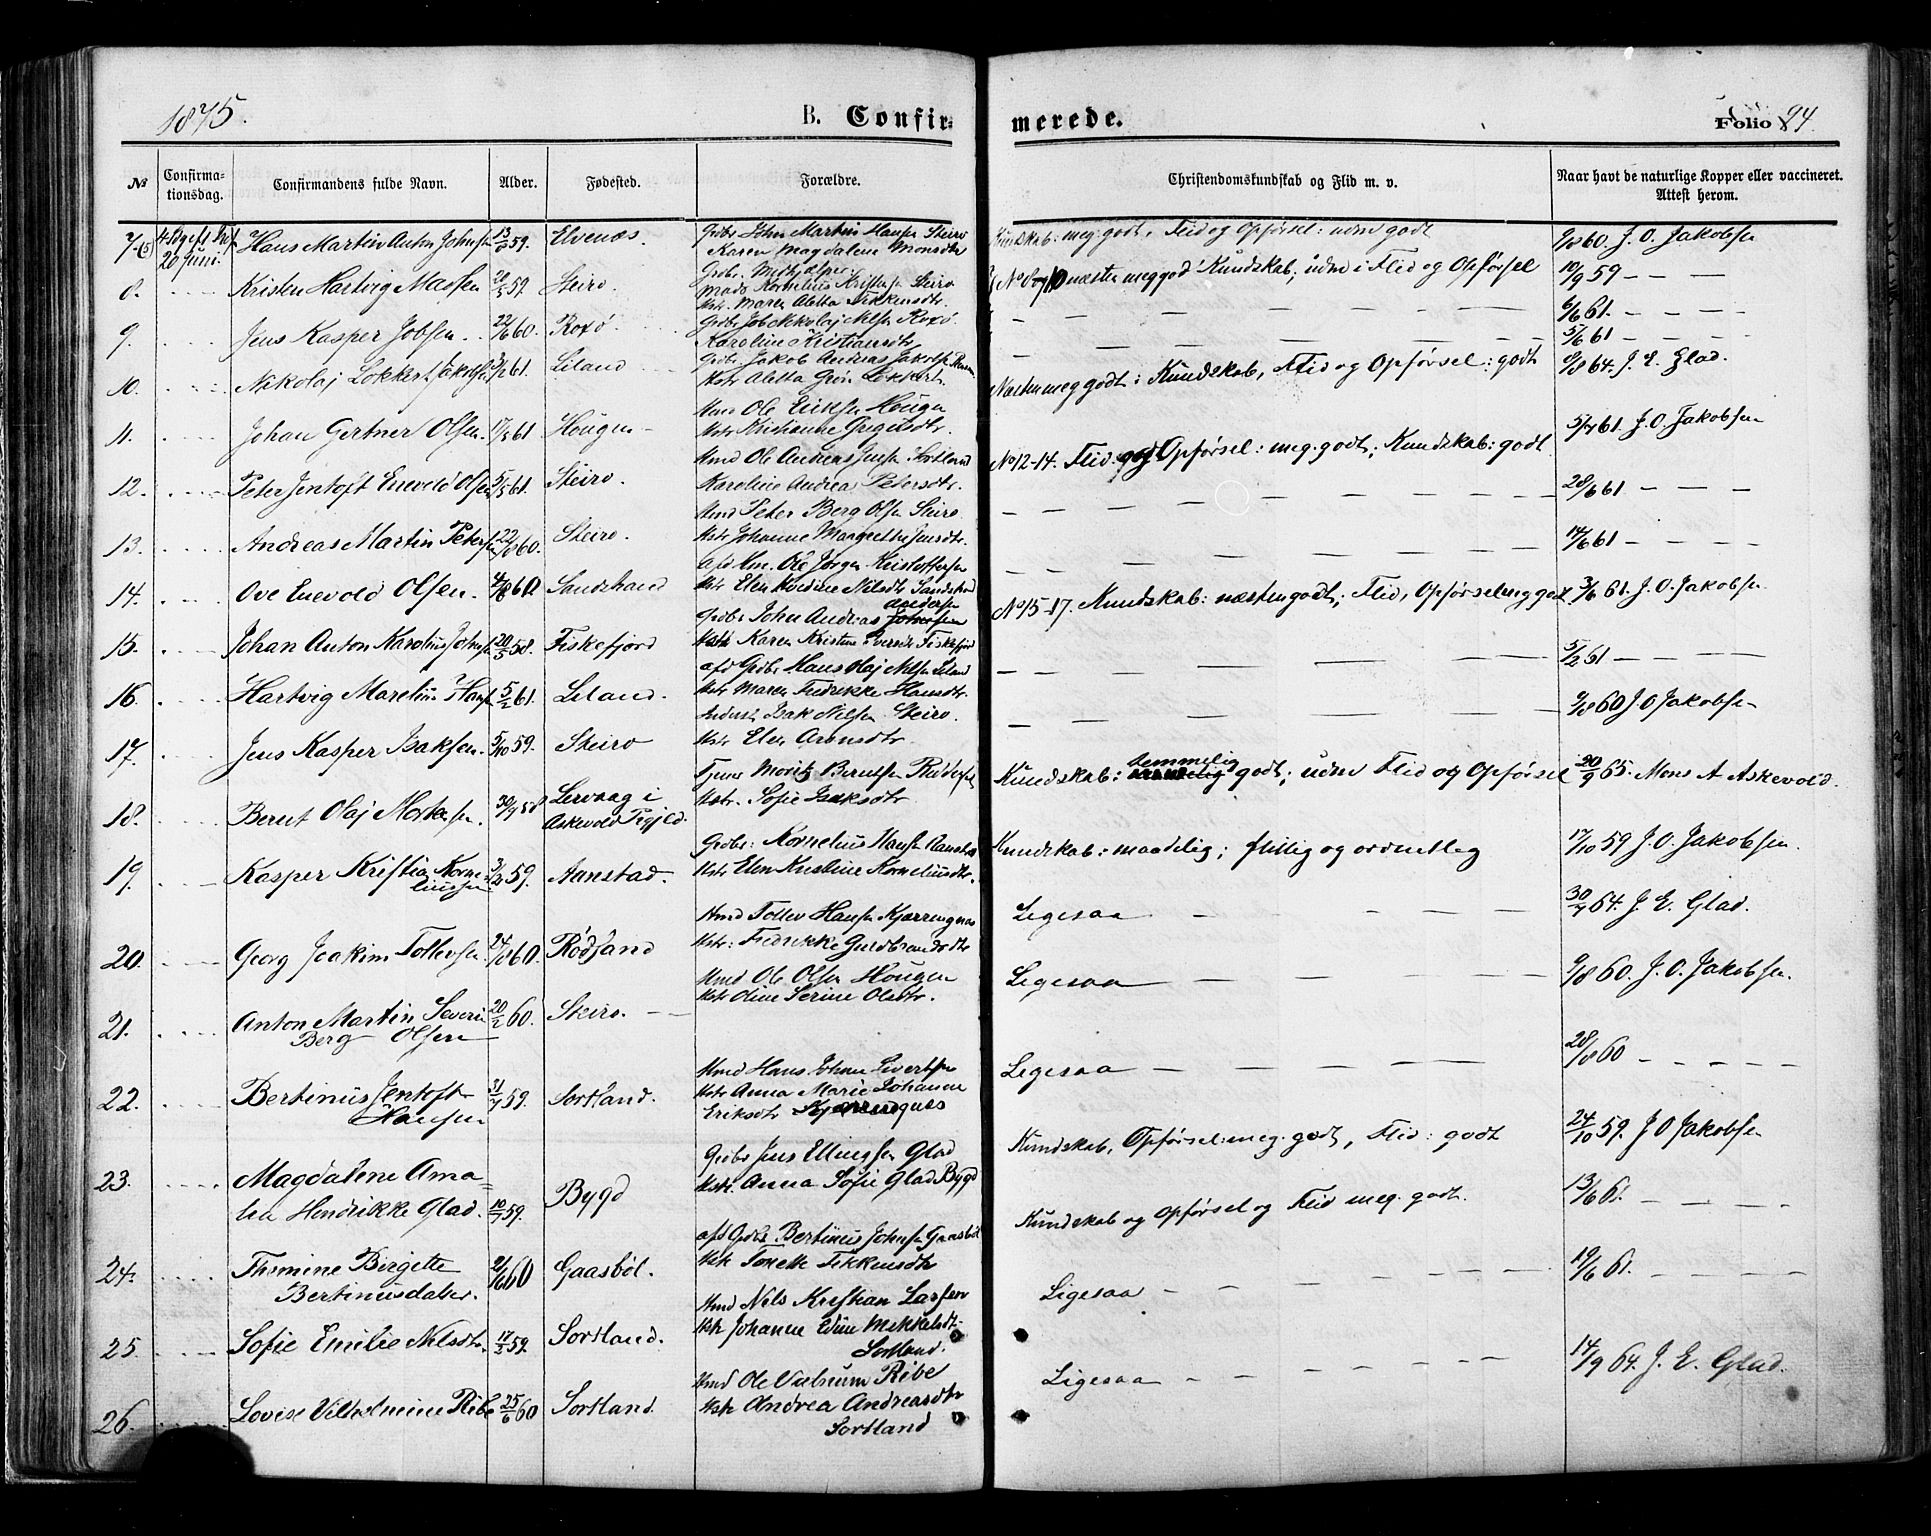 1875.
B. Confir-
merede.
Folio 94.
№
Confirma-
tionsdag.
Confirmandens fulde Navn.
Alder.
Fødested.
Forældre.
Christendomskundskab og Flid m. v.
Naar havt de naturlige Kopper eller vaccineret.
Attest herom.
7. 20 Juni. Hans Martin Anton Johnsen 59. Elvenæs. Grdbr John Martin Hansen Steiro
Karen Magdalene Monsdtr
Kundskab: meg. godt, Flid og Opførsel: udm godt
9/8 60. J. O. Jakobsen
8. Kristen Hartvig Madsen 59. Steiro. Mads Kornelius Kristensen Steiro
Hstr. Maren Aletta Fikkensdtr.
næsten meg god Kundskab; udm i Flid og Opførsel
19/9 59 — —
9. Jens Kasper Jobsen. 22/6 60. Roxø. Grdbr Job Nikolaj Nilsen Roxø.
Karoline Kristiansdtr
— — —
6/6 61. — — —
10. Nikolaj Lokkert Jakobsen 61. Liland Grdbr Jakob Andreas Jakobsen
Hstr Aletta Grøn Lokkert
— — —
5/6 61 — — —
Næsten meg godt i Kundskab, Flid og Opførsel: godt
9/8 64. J. E. Glad.
11. Johan Gertner Olsen 17/5 61 Hougen Hmd Ole Eriksen Hougen
Hstr Kristianne Gregersdtr.
12. Peter Jentoft Enevold Olsen 5/5 61. Steiro. Hmd Ole Andreas Jensen Sortland
Karoline Andrea Petersdtr.
No 12-14. Flid og Opførsel: meg. godt; Kundskab: godt
5/7 61 J. O. Jakobsen
13. Andreas Martin Petersen 22/8 60. Steiro. Hmd Peter Berg Olsen Steiro
Hstr Johanne Margrethe Jensdtr.
— — — — —
28/6 61 — — —
14. Ove Enevold Olsen. 4/8 60 Sandstrand afd Hm. Ole Jørgen Kristoffersen
Hstr Elen Nordine Nilsdtr Sandstrand
— — — — —
14/6 61 — — —
15. Johan Anton Karolius Johnsen 20/5 58. Fiskefjord Grdbr John Andreas Johnsen
Andersen
Hstr Karen Kristine Iversdtr Fiskefjord
No 15-17. Kundskab: næsten godt; Flid, Opførsel meg godt
3/6 61. J. O. Jakobsen
16. Hartvig Marelius Hansen 5/2 61. Liland. afd Grdbr Hans Olaj Nilsen Liland
Hstr Maren Fredrikke Hansdtr.
— — — — —
5/2 61 — — —
17. Jens Kasper Isaksen. 5/10 59. Steiro Inderst Isak Nilsen Steiro.
Hstr Elen Arensdtr.
— — — — —
9/8 60 J O Jakobsen
18. Bernt Olaj Mortensen. 30/9 58 Lervaag i
Askevold Prgjeld. Tjener Moritz Berntsen
Hstr. Sofie Isaksdtr
Kundskab: temmelig godt; udm Flid og Opførsel
20/9 65. Mons A Askevold.
19. Kasper Kristian Korne-
liussen 59. Aanstad. Grdbr: Kornelius Hansen Aanstad
Hstr Elen Kristine Korneliusdtr.
Kundskab: maadelig; flittig og ordentlig
17/10 59 J. O. Jakobsen.
20. Georg Joakim Tollevsen 24/8 60. Rødsand Hmd Tollev Hansen Kjærringnæs
Hstr: Fredrikke Guldbrandsdtr
Ligesaa — — — — —
30/9 64. J. E. Glad.
21. Anton Martin Severin
Berg Olsen 20/2 60. Steiro. Hmd Ole Olsen Hougen
Hstr Oline Serine Olsdtr.
Ligesaa — — — — —
9/8 60. J. O. Jakobsen.
22. Bertinus Jentoft
Hansen 31/7 59. Sortland. Hmd Hans Johan Sivertsen
Hstr Anna Marie Johanne
Eriksdtr Kjærringnæs
Ligesaa — — — — —
28/8 60 — — — —
23. Magdalene Ama-
lia Hendrikke Glad. 10/7 59. Bygd Grdbr Jens Ellingsen Glad
Hstr. Anna Sofie Glad Bygd
Kundskab, Opførsel: meg. godt, Flid: godt
24/10 59. J O Jakobsen
24. Thomine Birgette
Bertinusdatter. 60 Gaasbøl. afd Grdbr Bertinus Johnsen Gaasbøl
Hstr Tonette Fikkensdtr
Kundskab og Opførsel og Flid meg. godt.
13/6 61. — — —
25. Sofie Emilie Nilsdtr. 17/2 59. Sortland. Hmd Nils Kristian Larsen
Hstr Johanne Edine Mekkelsdtr.
Sortland.
Ligesaa — — — — — —
19/6 61. — — — —
26. Lovise Vilhelmine Ribe 25/6 60 Sortland. Hmd Ole Ribe
Hstr Andrea Andreasdtr
Sortland
Ligesaa — — — — — —
14/9 64. J. E. Glad.